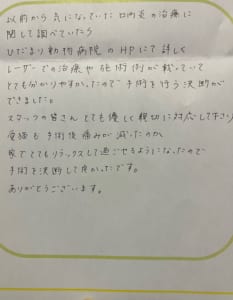 以前から気になっていた口内炎の治療に
関して調べていたら
ひだまり動物病院のHPにて詳しく
レーザーでの治療や施術例が載っていて
とても分かりやすかったので手術を行う決断が
できました。
スタッフの皆さんとても優しく親切に対応して下さり
愛猫も手術後痛みが減ったのか
家でとてもリラックスして過ごせるようになったので
手術を決断して良かったです。
ありがとうございます。